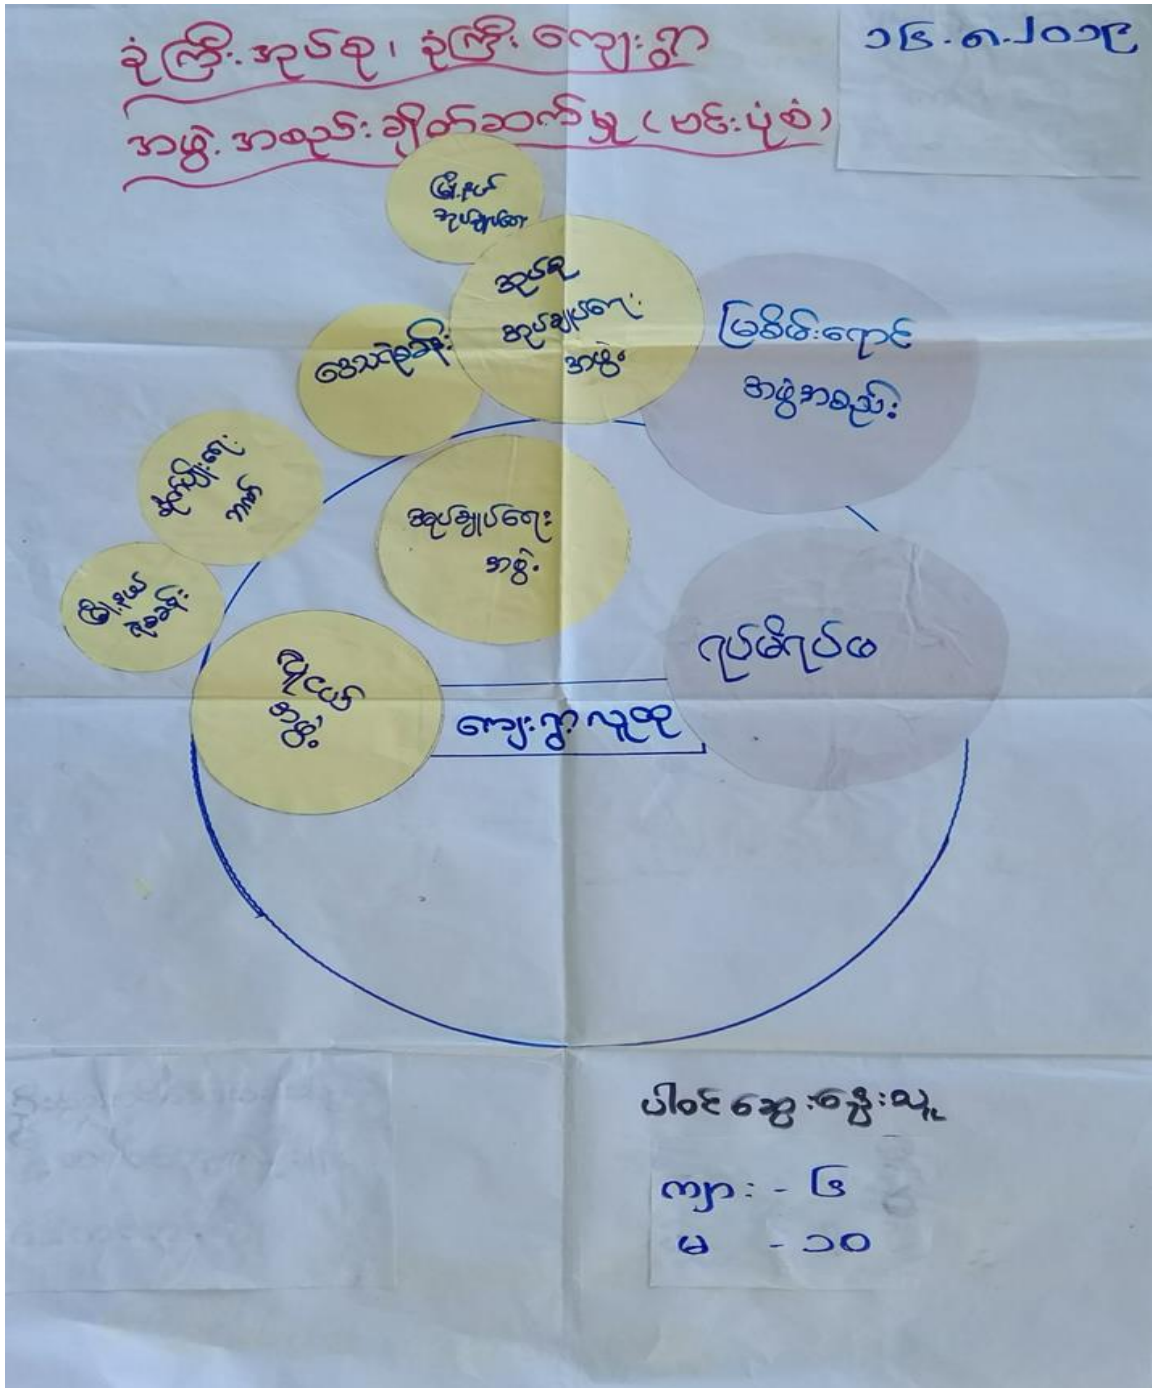 ခုံကြီး အုပ်စု၊ ခုံကြီး ကျေးရွာ
အဖွဲ့အစည်း ချိတ်ဆက်မှု (ဗင်းပုံစံ)
၁၆.၈.၂၀၁၉
မြို့နယ်
အုပ်ချုပ်ရေး
အုပ်စု
အုပ်ချုပ်ရေး
အဖွဲ့
မြစိမ်းရောင်
အဖွဲ့အစည်း
ဒေသရဲစခန်း
စိုက်ပျိုးရေး
အုပ်ချုပ်ရေး
အဖွဲ့
မြို့နယ်
ရဲစခန်း
ရပ်မိရပ်ဖ
လူငယ်
အဖွဲ့
ကျေးရွာ လူထု
ပါဝင် ဆွေးနွေးသူ
ကျား - ၆
မ - ၁၀